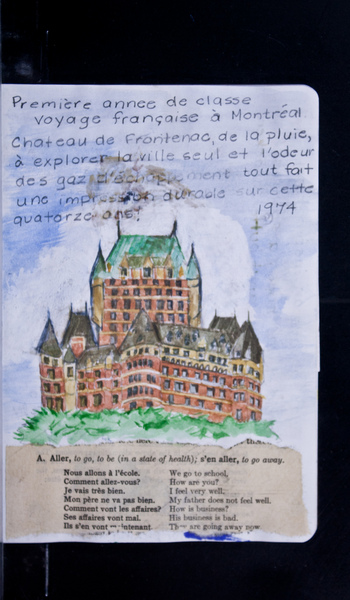 Première annee de classe
voyage française à Montréal
Chateau de Frontenac, de la pluie,
à explorer la ville seul et l'odeur
des gaz d'échappement tout fait
une impression durable sur cette
quatorze ans!
1974
A. Aller, to go, to be (in a state of health); s'en aller, to go away.
Nous allons à l'école. We go to school.
Comment allez-vous? How are you?
Je vais très bien. I feel very well.
Mon père ne va pas bien. My father does not feel well.
Comment vont les affaires? How is business?
Ses affaires vont mal. His business is bad.
Ils s'en vont maintenant. They are going away now